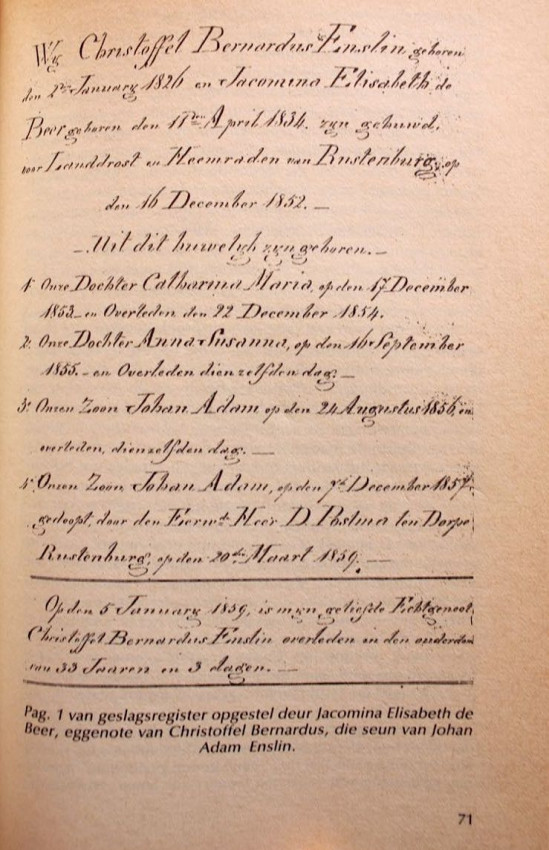 Wy Christoffel Bernardus Enslin geboren
den 2den January 1826 en Jacomina Elisabeth de
Beer geboren den 11den April 1834. zyn gehuwd.
voor Landdrost en Heemraden van Rustenburg, op
den 16 December 1852. —
— Uit dit huwelyk zyn geboren. —
1: Onze Dochter Catharina Maria, op den 17 December
1853 — en Overleden den 22 December 1854.
2: Onze Dochter Anna Susanna, op den 16 September
1855. — en Overleden dienzelfden dag. —
3: Onzen Zoon Johan Adam op den 24 Augustus 1856, en
overleden, dienzelfden dag. —
4: Onzen Zoon Johan Adam, op den 7de December 1857.
gedoopt, door den Eerwd. Heer D. Postma ten Dorpe
Rustenburg, op den 20ste Maart 1859. —
Op den 5 January 1859, is myn geliefde Echtgenoot,
Christoffel Bernardus Enslin overleden in den ouderdom
van 33 Jaaren en 3 dagen. —
Pag. 1 van geslagsregister opgestel deur Jacomina Elisabeth de
Beer, eggenote van Christoffel Bernardus, die seun van Johan
Adam Enslin.
71